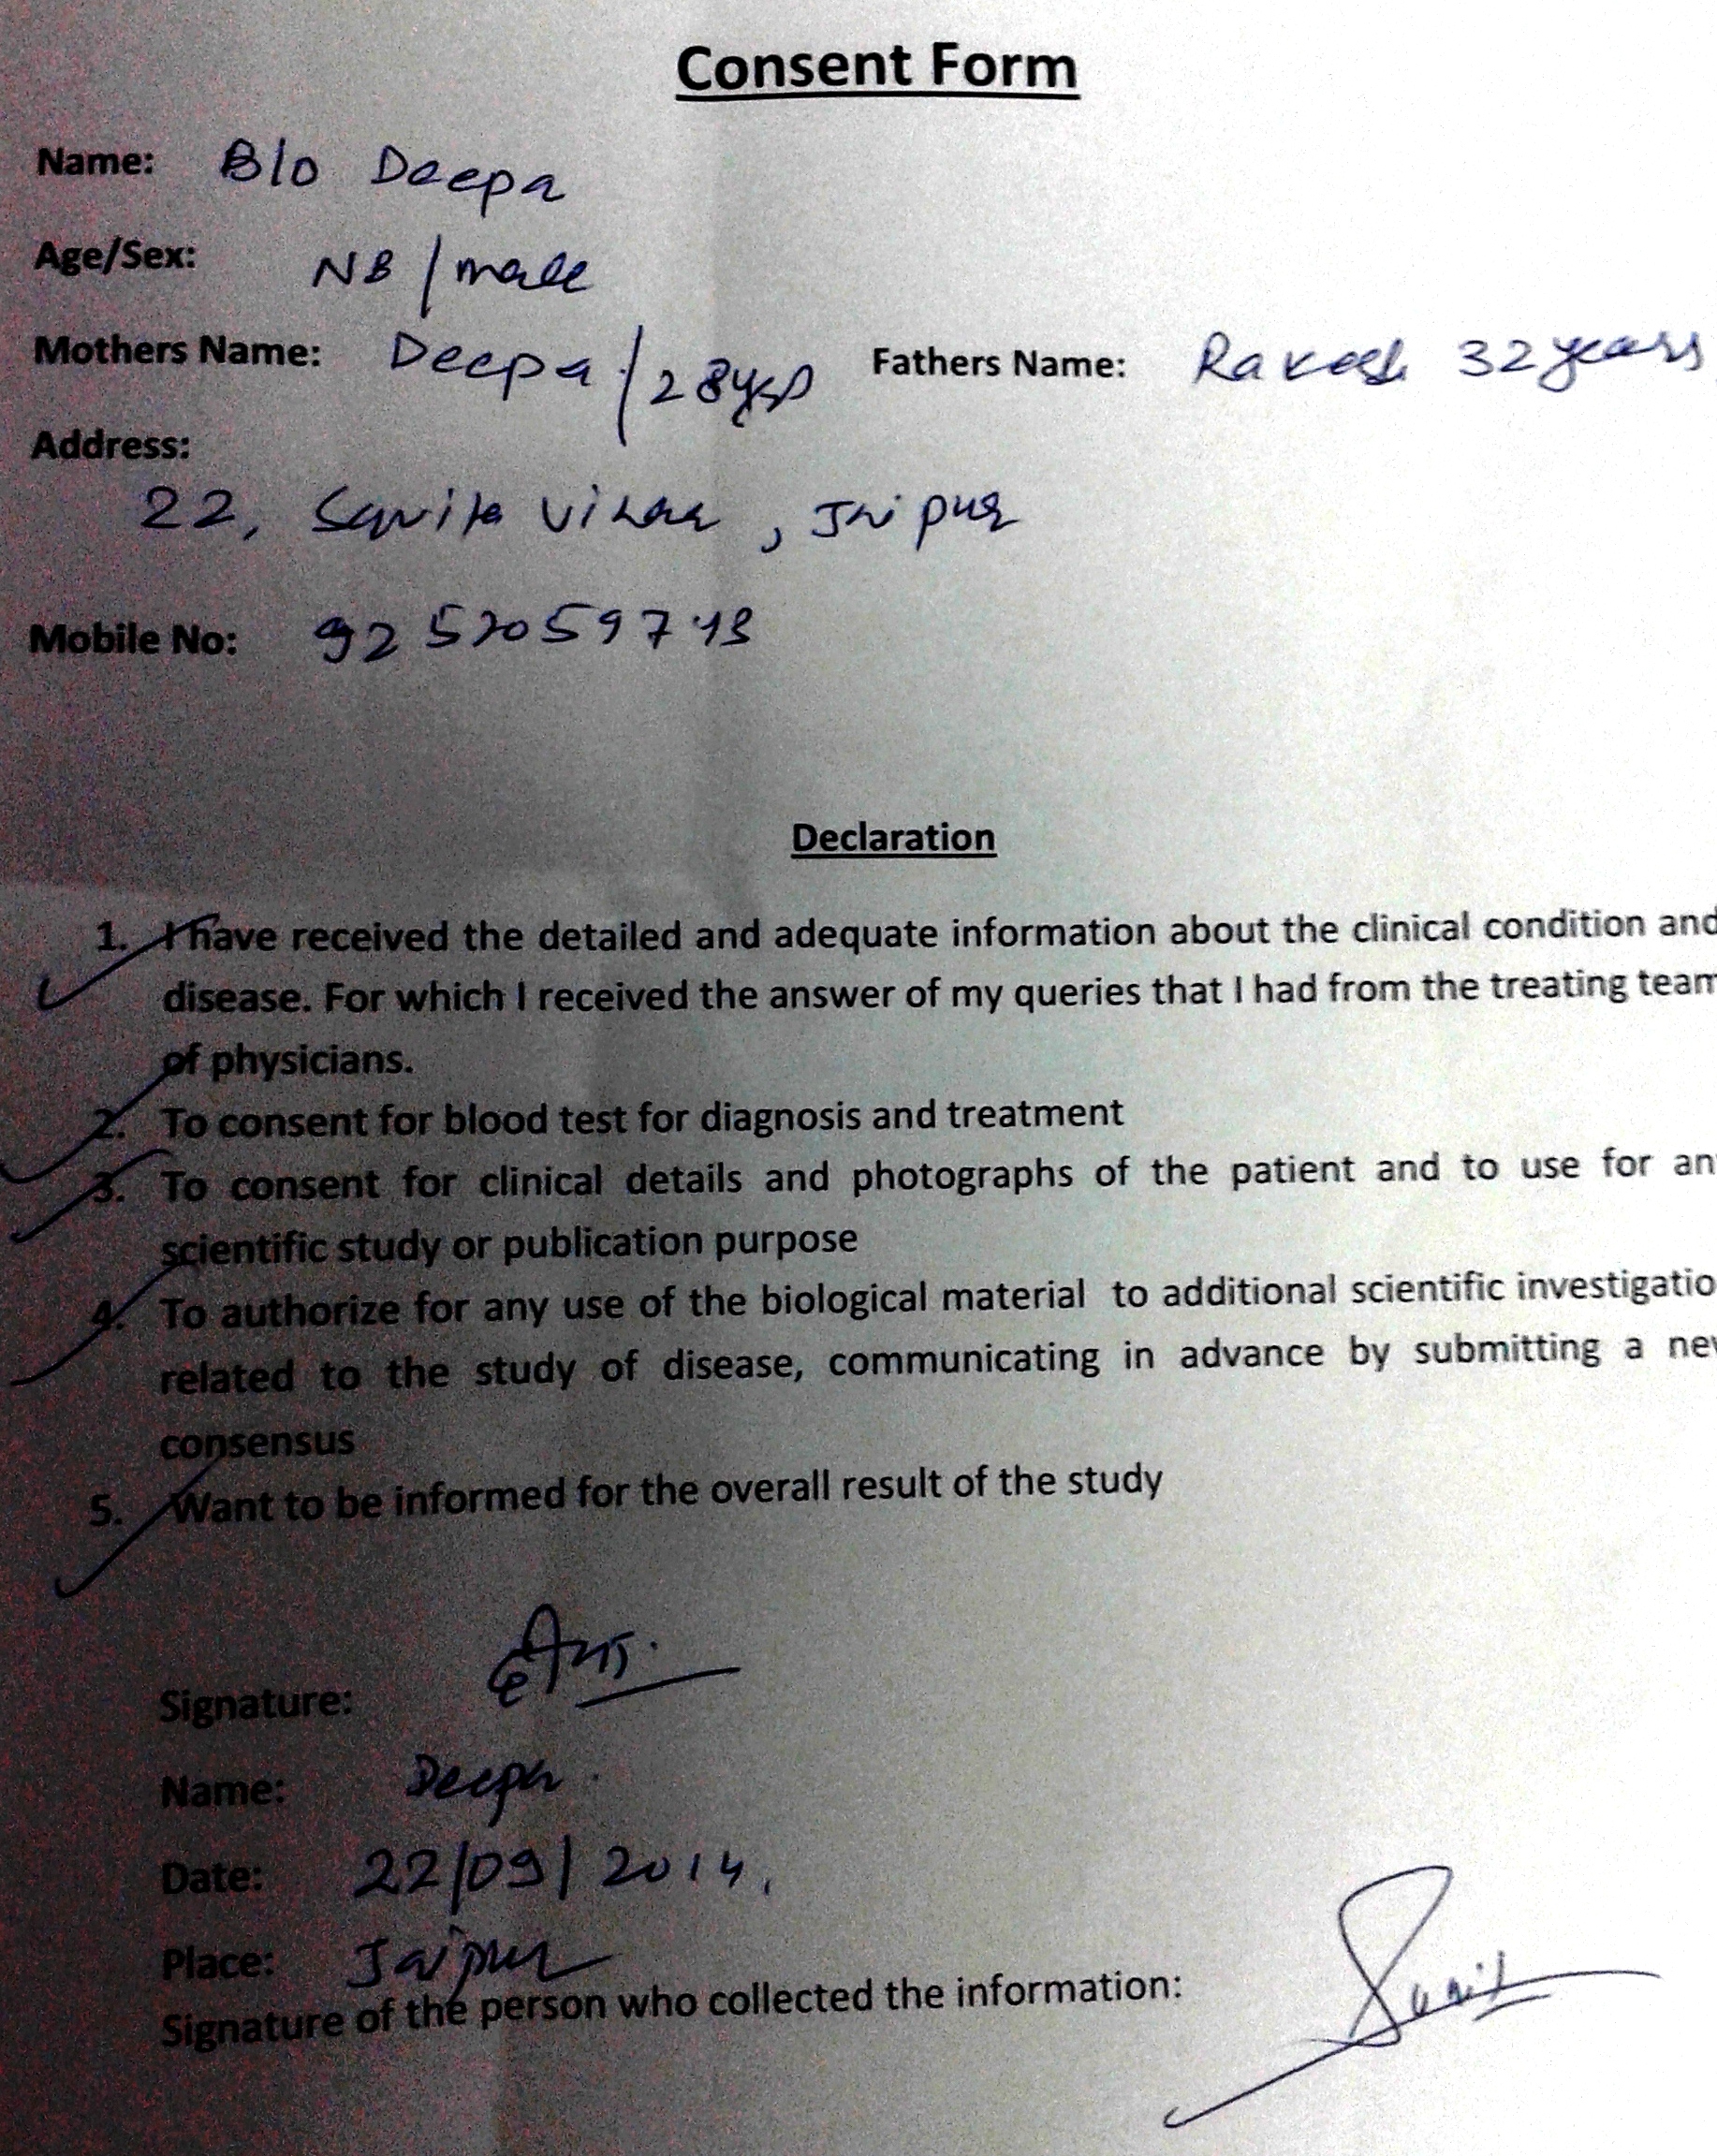 Consent Form
Name: B/o Deepa
Age/Sex: NB / male
Mothers Name: Deepa / 28 Fathers Name: Rakesh 32 years
Address:
22, Vihar, Jaipur
Mobile No:
Declaration
1. I have received the detailed and adequate information about the clinical condition and
disease. For which I received the answer of my queries that I had from the treating team
of physicians.
2. To consent for blood test for diagnosis and treatment
3. To consent for clinical details and photographs of the patient and to use for an
scientific study or publication purpose
4. To authorize for any use of the biological material to additional scientific investigatio
related to the study of disease, communicating in advance by submitting a new
consensus
5. Want to be informed for the overall result of the study
Signature:
Name: Deepa
Date: 22/09/2014.
Place: Jaipur
Signature of the person who collected the information: